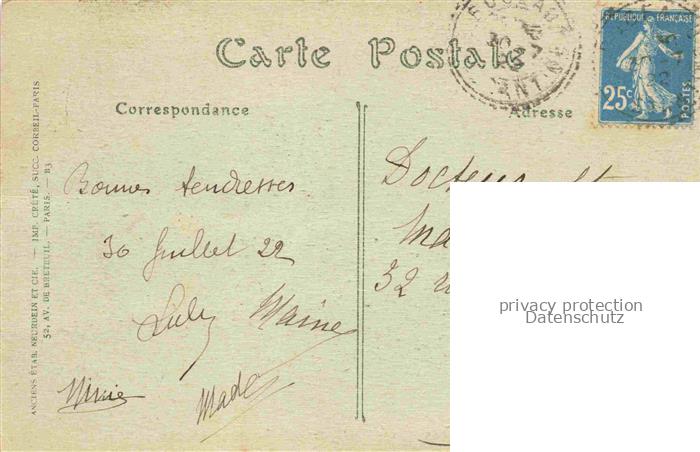 Carte Postale
RÉPUBLIQUE FRANÇAISE
25c
POSTES
Correspondance
Adresse
Bonnes tendresses
30 Juillet 22
Docteur et
32
Made
ANCIENS ÉTAB. NEURDEIN ET CIE. — IMP. CRÉTÉ, SUCC. CORBEIL-PARIS
52, AV. DE BRETEUIL. — PARIS. — B3
privacy protection
Datenschutz